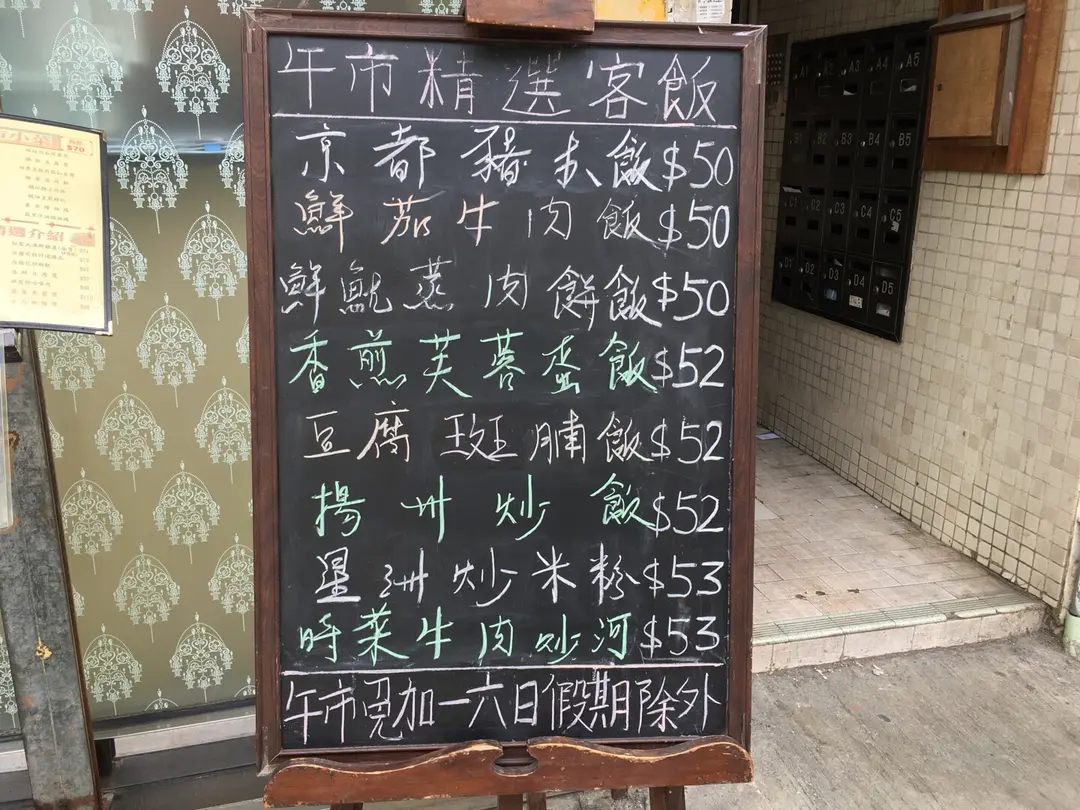 午市精選客飯
京都豬扒飯$50
鮮茄牛肉飯$50
鮮魷蒸肉餅飯$50
香煎芙蓉蛋飯$52
豆腐斑腩飯$52
揚州炒飯$52
星洲炒米粉$53
時菜牛肉炒河$53
午市免加一六日假期除外
小菜
$70
精選介紹
A1 A2 A3 A4 A5
B1 B2 B3 B4 B5
C1 C2 C3 C4 C5
D1 D2 D3 D4 D5